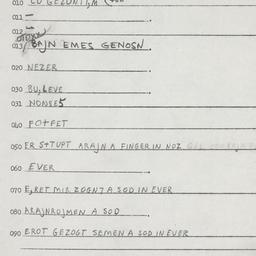 010 CU GEZUNT;M
011 —
012
013 BAJN EMES GENOSN.
020 NEZER
030 BULEVE
031 NONSES
040 FOTFET
050 ER STTUPT ARAJN A FINGER IN NOZ
060 EVER
070 E,RET MIR ZOGNT A SOD IN EVER
080 ARAJNROJMEN A SOD
090 EROT GEZOGT SEMEN A SOD IN EVER